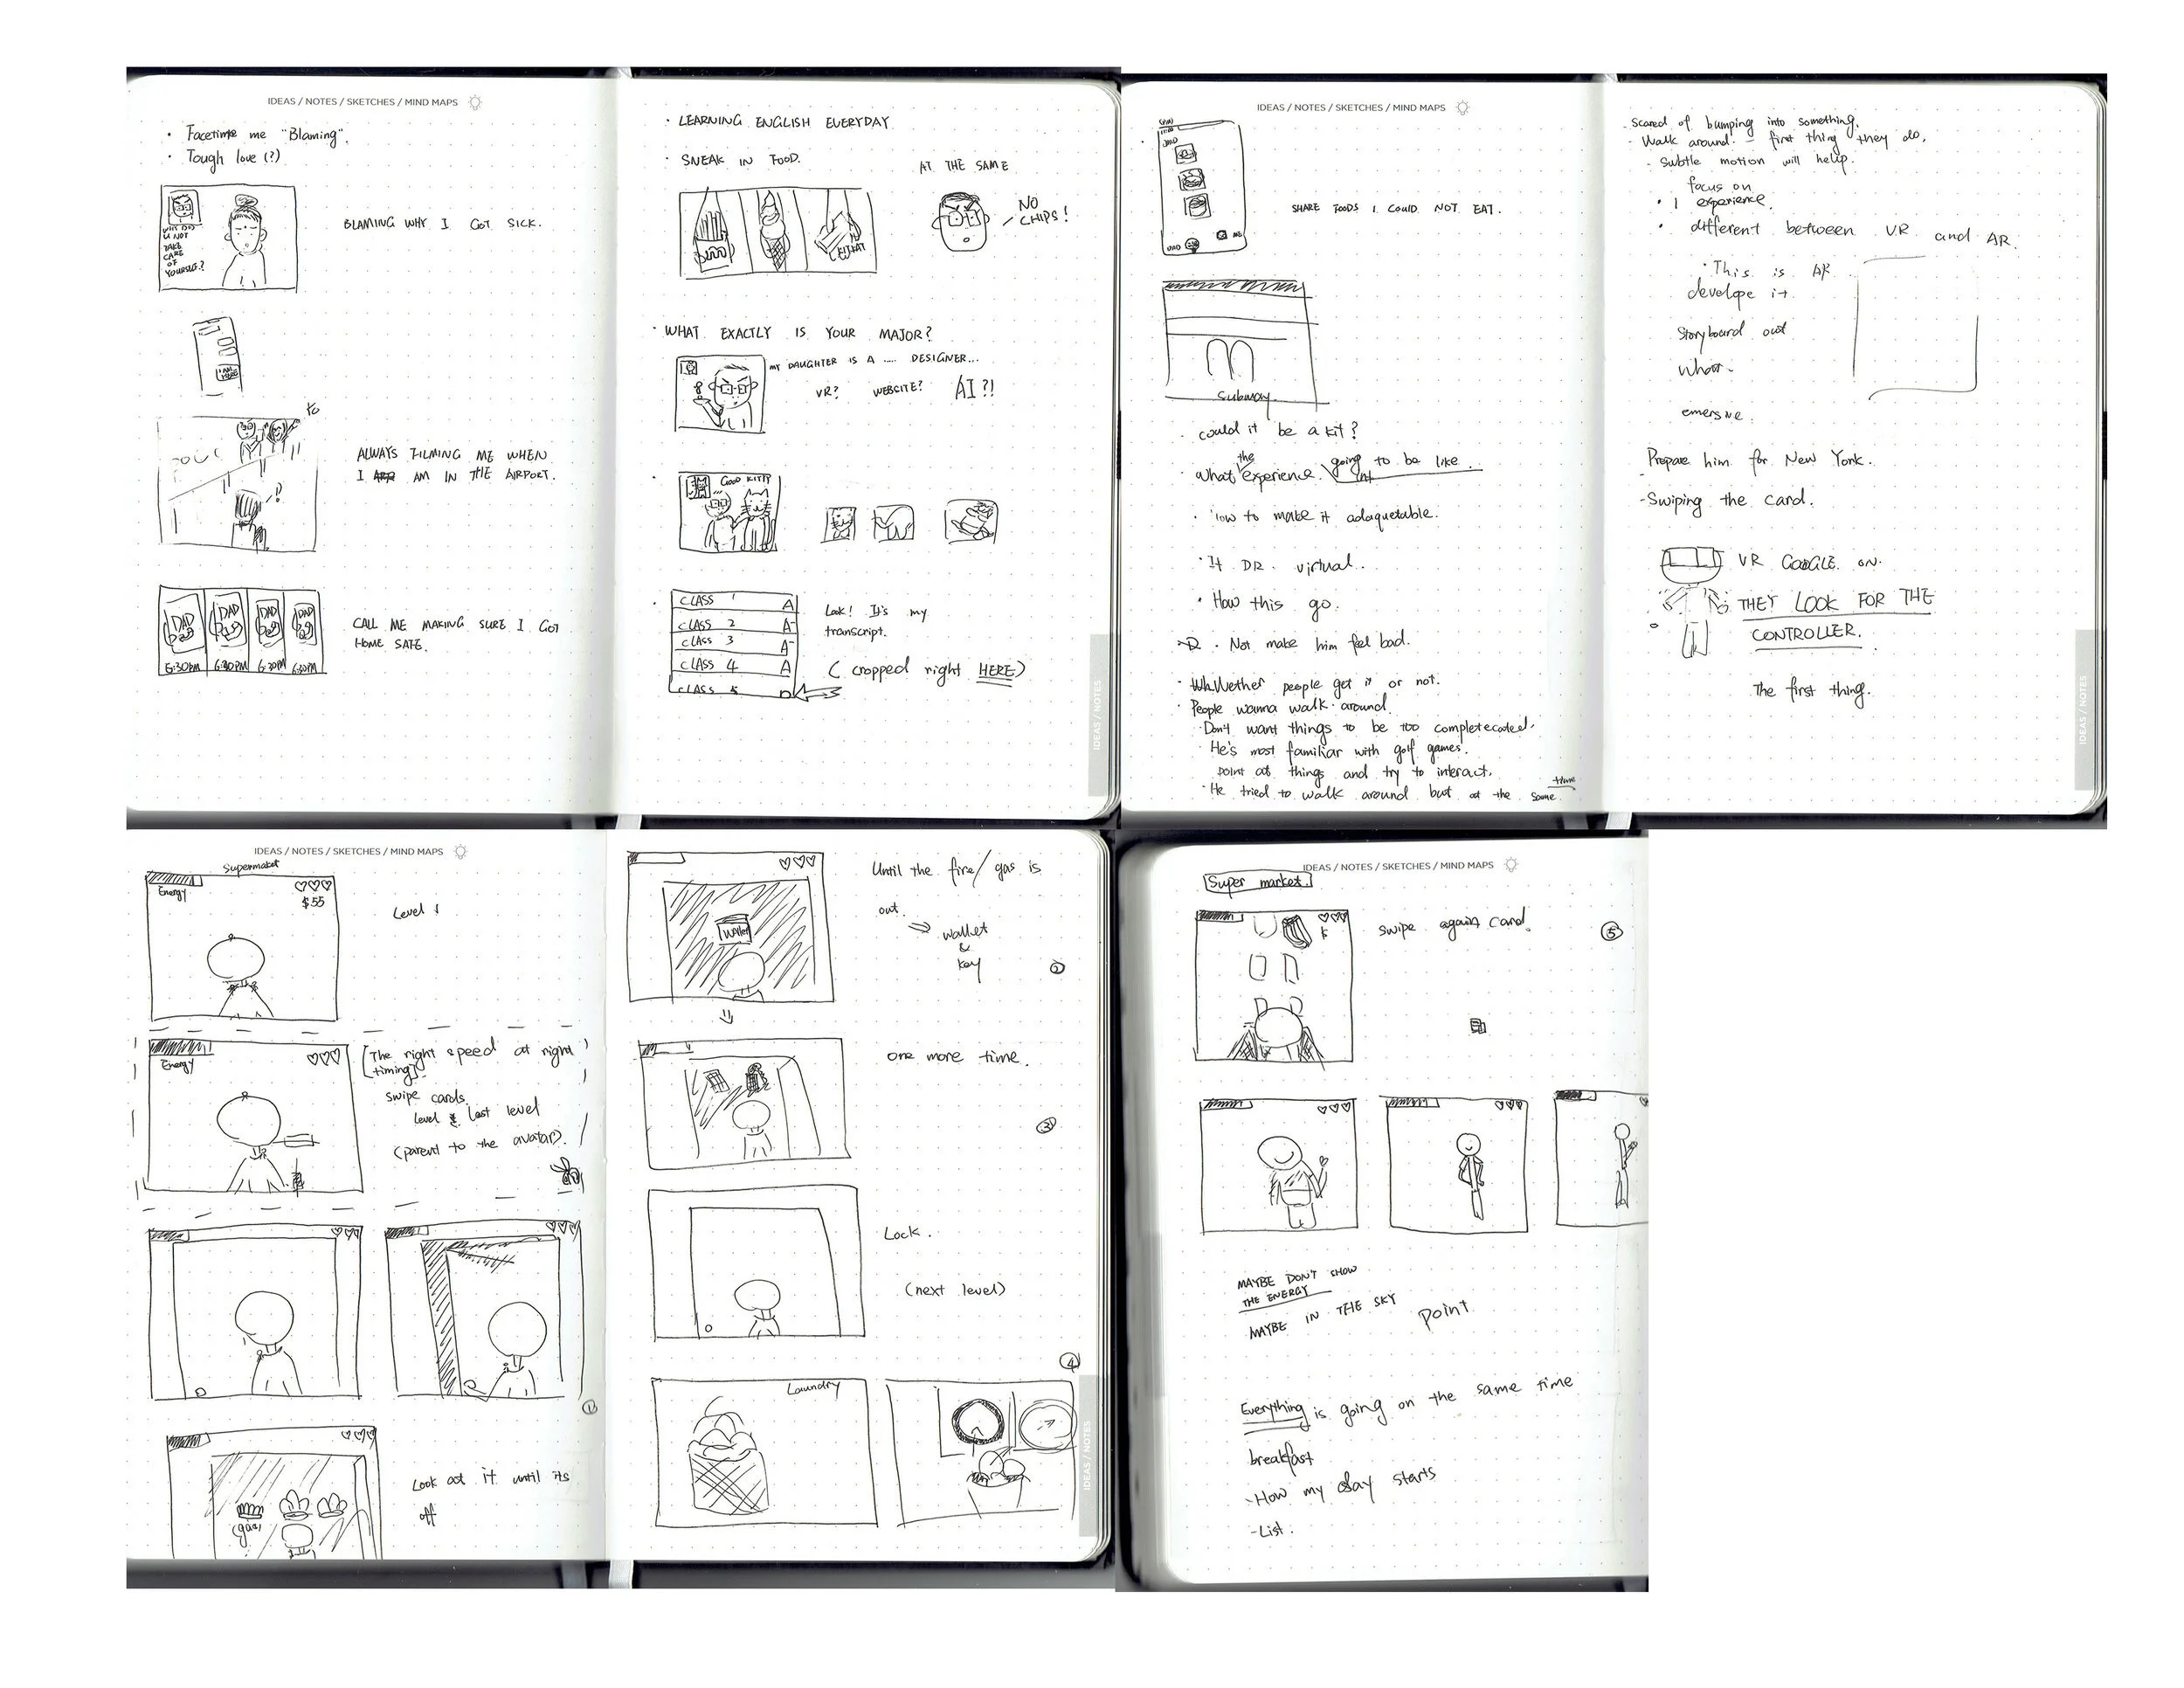 IDEAS / NOTES / SKETCHES / MIND MAPS
• Facetime me "Blaming".
• Tough love (?)
WHY DID
U NOT
TAKE
CARE
OF
YOURSELF?
BLAMING WHY I GOT SICK.
I AM
HERE
TO
ALWAYS FILMING ME WHEN
I AM IN THE AIRPORT.
DAD DAD DAD DAD
6:30PM 6:30PM 6:30PM 6:30PM
CALL ME MAKING SURE I GOT
HOME SAFE.
• LEARNING ENGLISH EVERYDAY
• SNEAK IN FOOD.
AT THE SAME
KITKAT
NO
CHIPS!
• WHAT EXACTLY IS YOUR MAJOR?
MY DAUGHTER IS A .... DESIGNER...
VR? WEBSITE? AI?!
GOOD KITTY
CLASS 1 A
CLASS 2 A-
CLASS 3 A-
CLASS 4 A
CLASS 5 D
Look! It's my
transcript.
( cropped right HERE)
IDEAS / NOTES
IDEAS / NOTES / SKETCHES / MIND MAPS
DAD
DAD ME
SHARE FOODS I COULD NOT EAT.
Subway
• could it be a kit?
• What the experience going to be like.
• How to make it adaquetable.
• If DR. virtual.
• How this go.
• Not make him feel bad.
• Whether people get it or not.
• People wanna walk around.
Don't want things to be too completecated.
• He's most familiar with golf games.
point at things and try to interact.
• He tried to walk around but at the same time
- Scared of bumping into something.
- Walk around. - first thing they do.
- Subtle motion will help.
focus on
• 1 experience.
• different between VR and AR.
• This is AR
develope it
Storyboard out
what.
emersive.
- Prepare him for New York.
- Swiping the card.
VR GOOGLE ON.
THEY LOOK FOR THE
CONTROLLER.
The first thing.
IDEAS / NOTES
IDEAS / NOTES / SKETCHES / MIND MAPS
Supermaket
Energy
$55
Level 1
Energy
[The right speed at right
timing].
swipe cards.
Level Last level
(parent to the avatar).
1
gas
Look at it until its
off
wallet
Until the fire/ gas is
out.
⇒ wallet
&
key
2
one more time.
3
Lock.
(next level)
4
Laundry
IDEAS / NOTES
IDEAS / NOTES / SKETCHES / MIND MAPS
Super market.
$
swipe again card.
5
MAYBE DON'T SHOW
THE ENERGY
MAYBE IN THE SKY
point
Everything is going on the same time
breakfast
- How my day starts
- List.